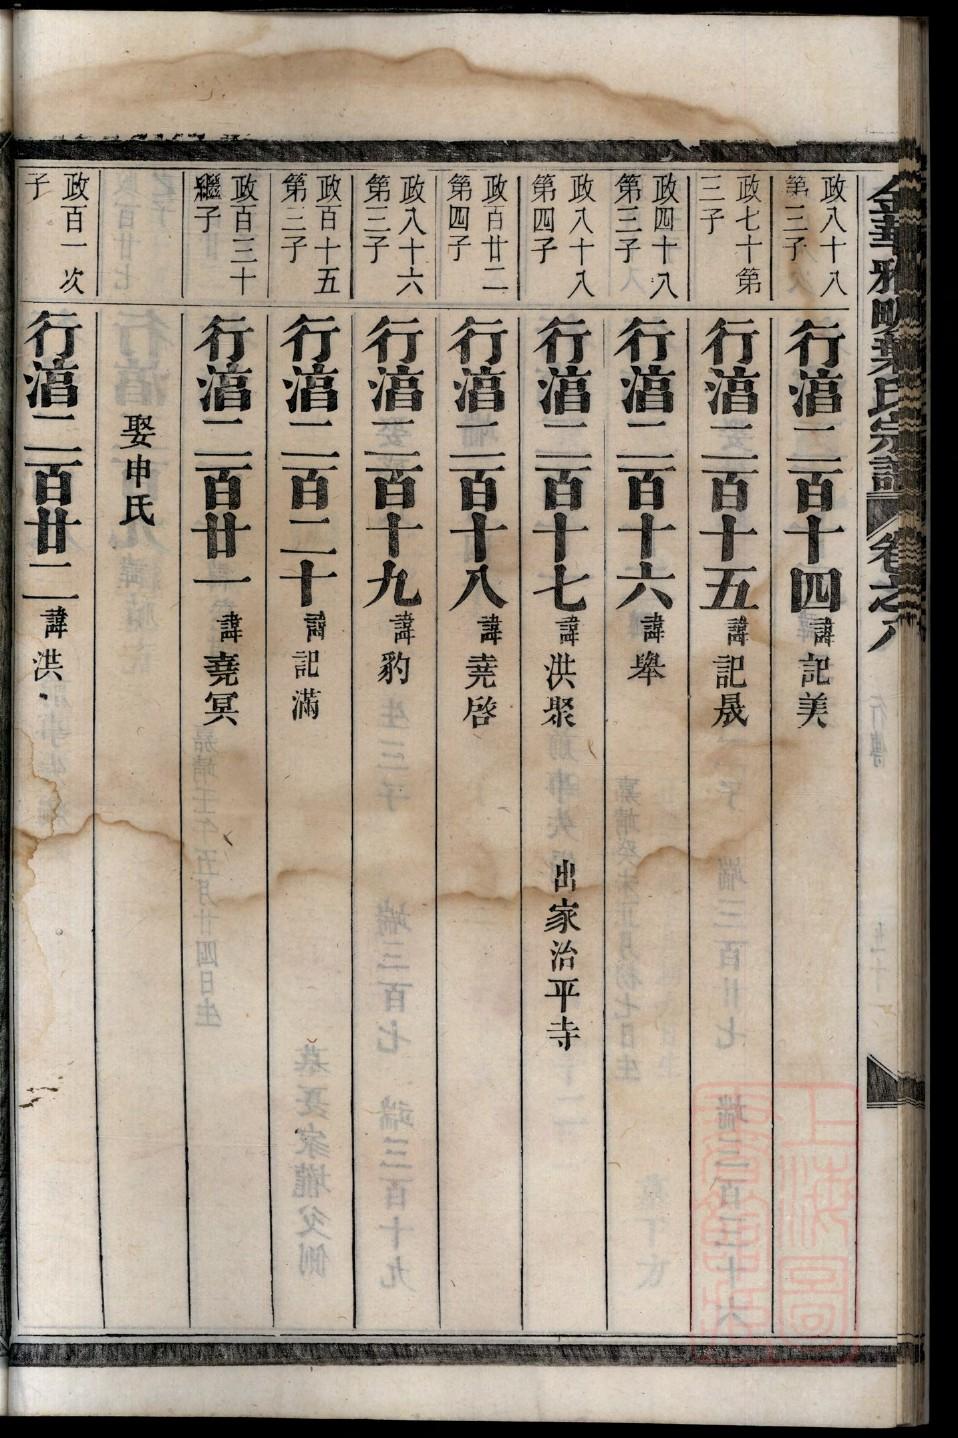 政八十八
第三子
行湇二百十四 諱記美
政七十第
三子
行湇二百十五 諱記晟
政四十八
第三子
行湇二百十六 諱舉
政八十八
第四子
行湇二百十七 諱洪聚 出家治平寺
政百廿二
第四子
行湇二百十八 諱堯啓
政八十六
第三子
行湇二百十九 諱豹
政百十五
第三子
行湇二百二十 諱記滿
政百三十
繼子
行湇二百廿一 諱堯冥
娶申氏
政百一次
子
行湇二百廿二 諱洪